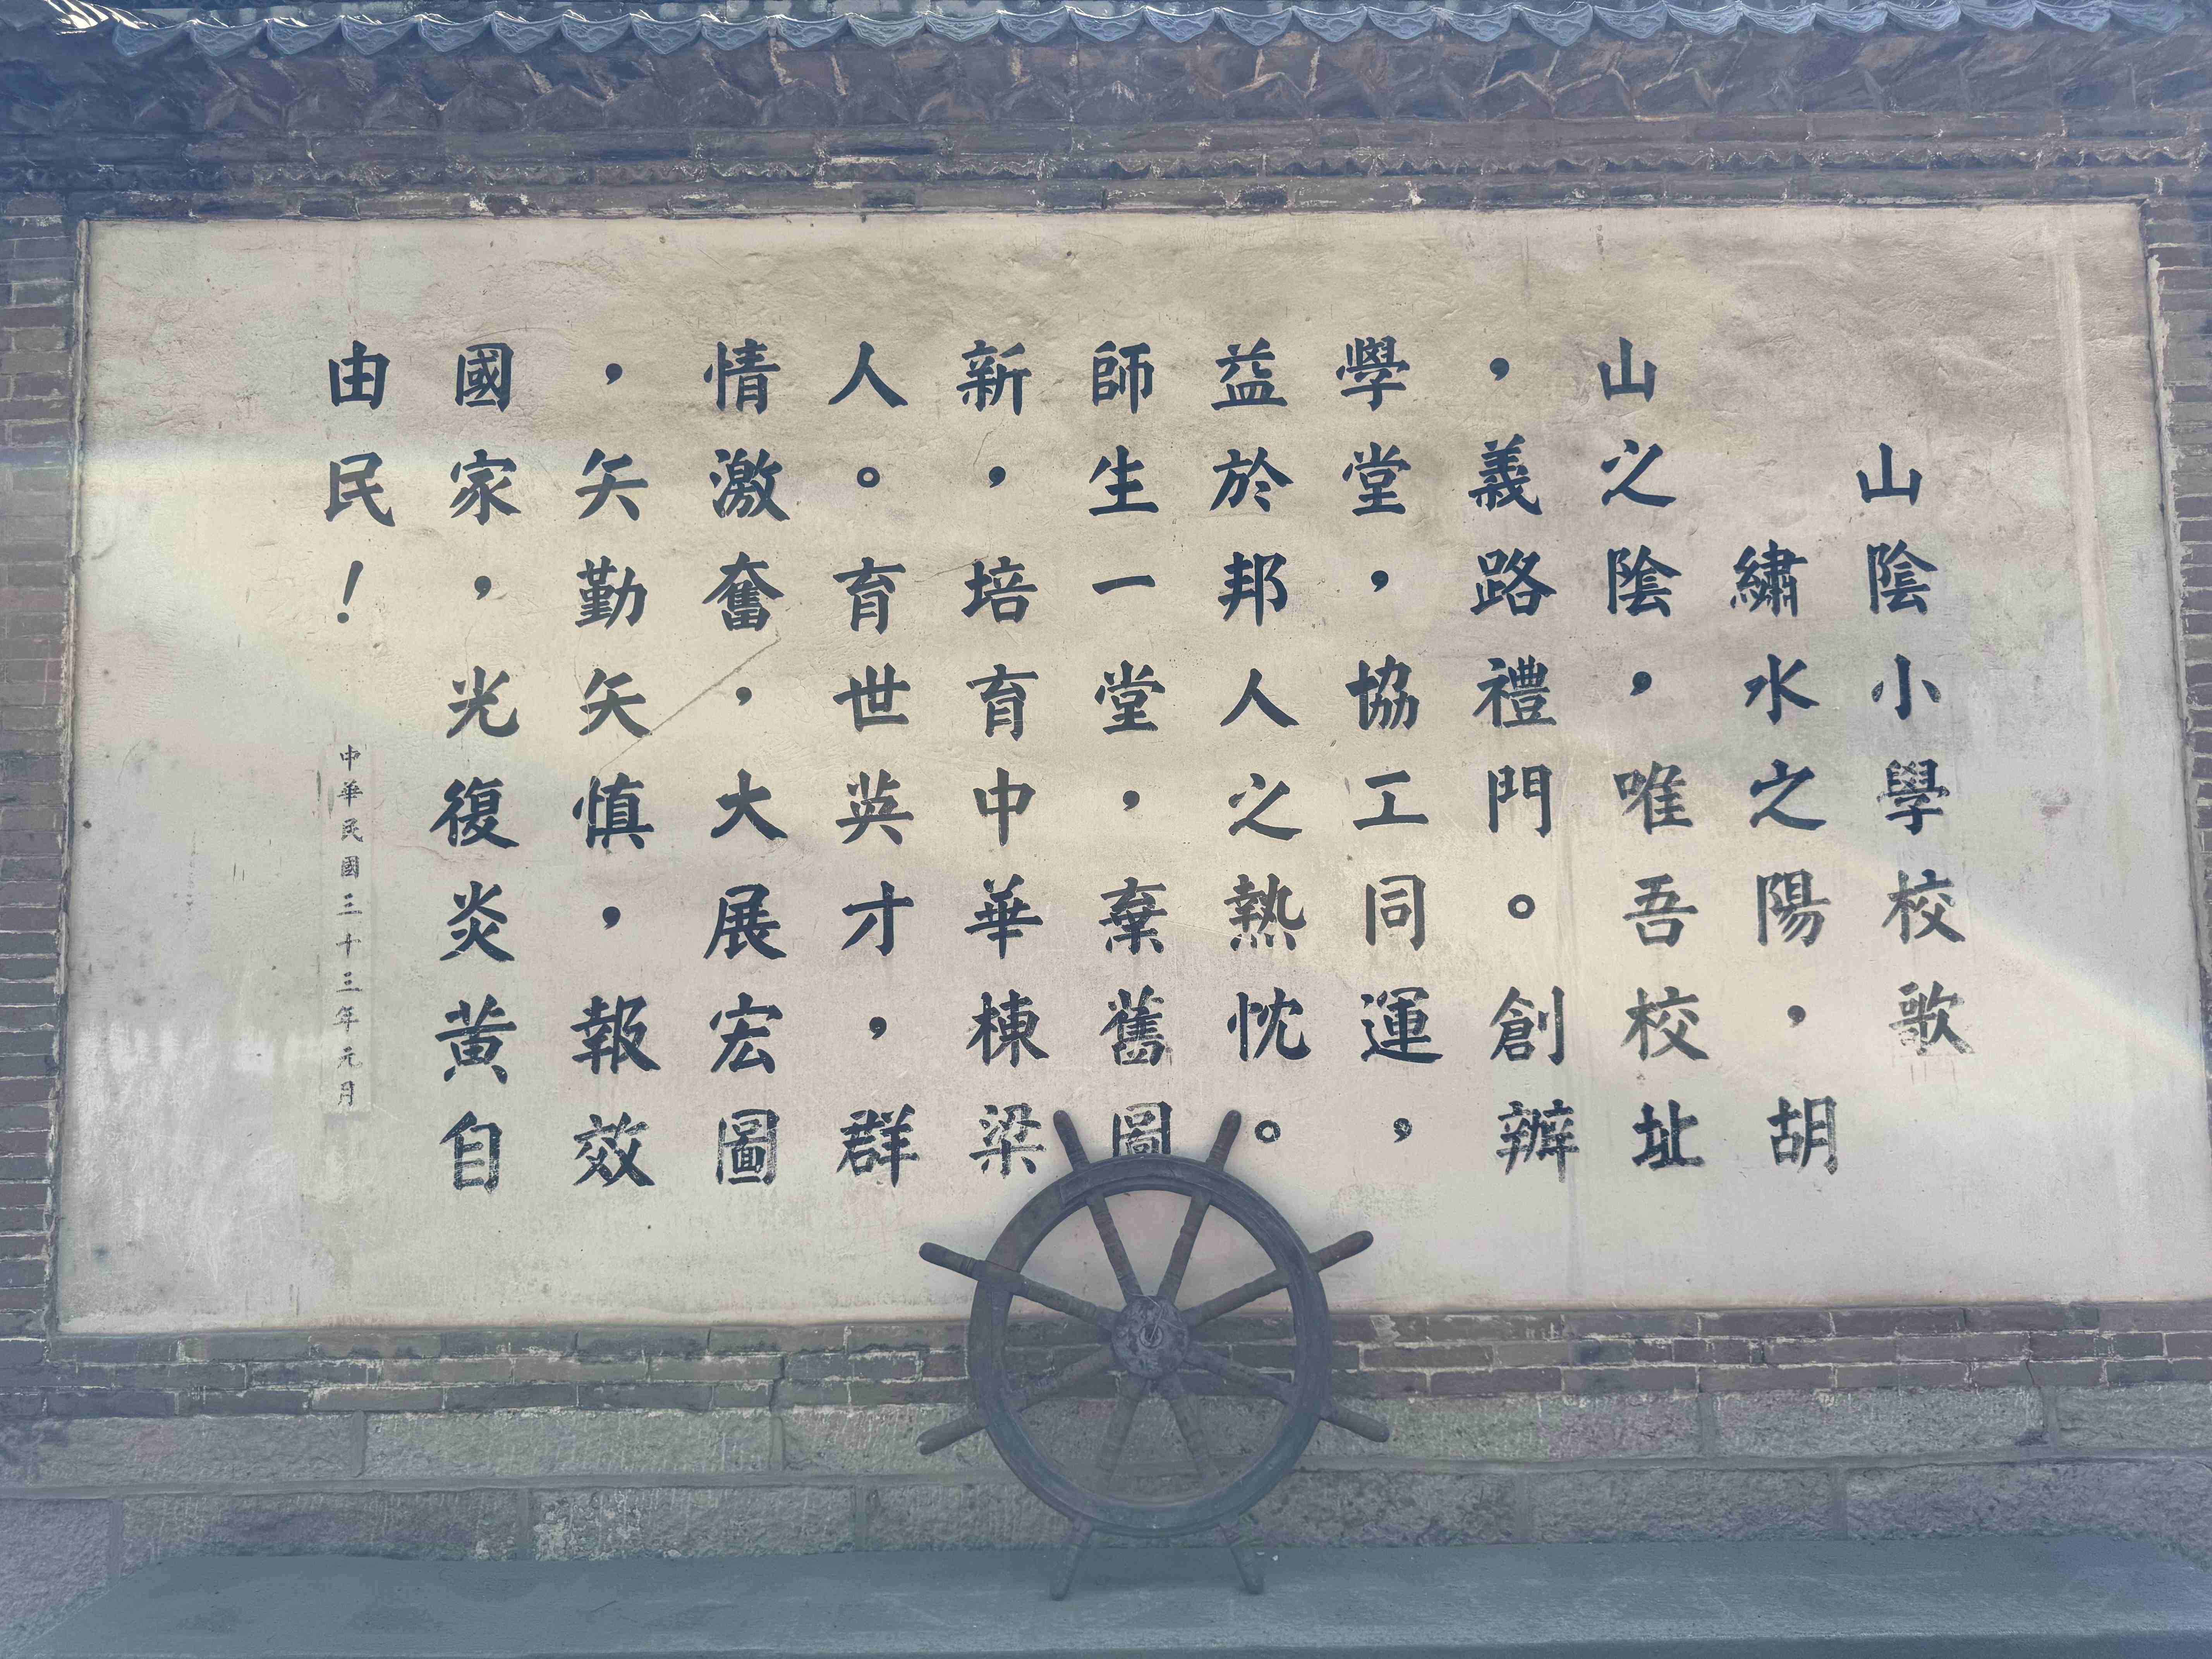 山陰小學校歌
繡水之陽，胡
山之陰，唯吾校址
，義路禮門。創辦
學堂，協工同運，
益於邦人之熱忱。
師生一堂，棄舊圖
新，培育中華棟梁
人。育世英才，群
情激奮，大展宏圖
，矢勤矢慎，報效
國家，光復炎黃自
由民！
中華民國三十三年元月